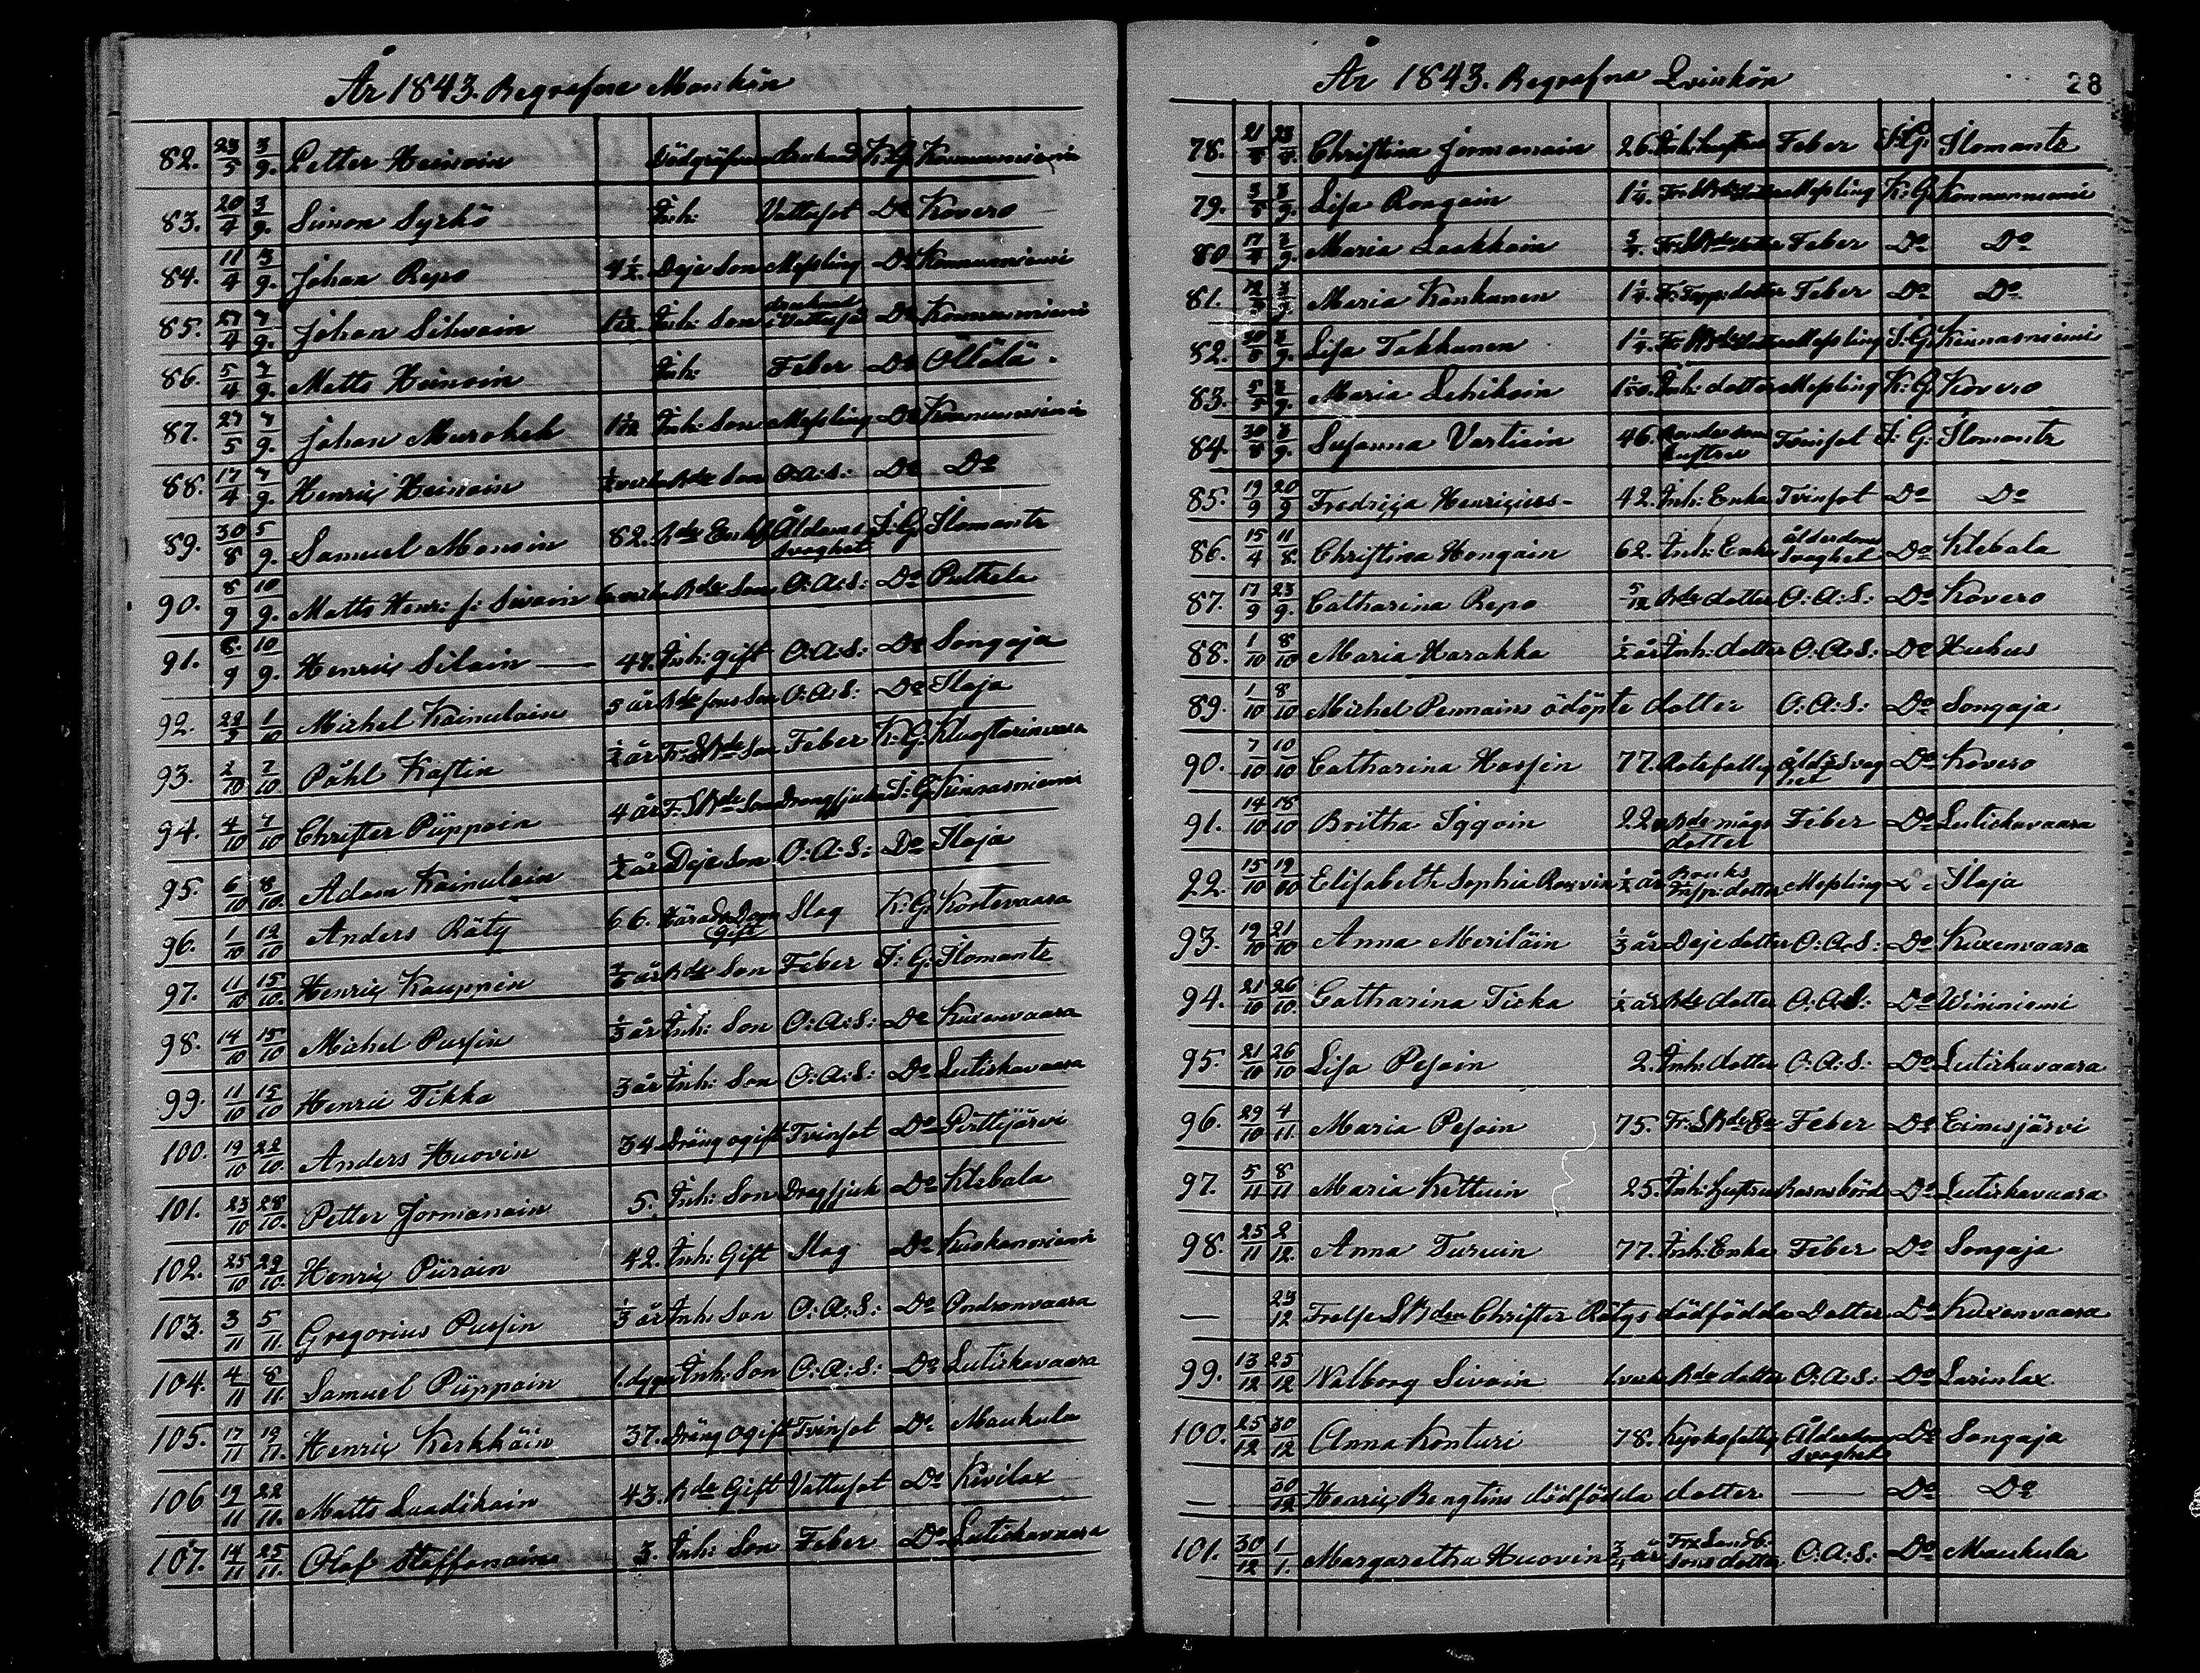 År 1843. Begrafne Mankön
82. 23/5 3/9. Petter Heinoin drunknad K.G. Konnunniemi
83. 20/4 3/9. Simon Syrkö Inh: Vattusot Do Kovero
84. 11/4 3/9. Johan Repo 4 1/2. Deje Son Messling Do Konnunniemi
85. 27/4 7/9. Johan Sihvoin 1 1/12 Inh: Son Vattusot Do Konnunniemi
86. 5/4 7/9. Matts Heinoin Inh: Feber Do Öllölä.
87. 27/5 7/9. Johan Murokek 1 1/12 Inh: Son Messling Do Konnunniemi
88. 17/4 7/9. Henric Heinoin Bde Son O:A:S: Do Do
89. 30/8 5/9. Samuel Monoin 82. Bde Enkl Ålderdoms svaghet I:G: Ilomants
90. 8/9 10/9. Matts Henr: s: Sivoin 6 veck Bde Son O:A:S: Do Putkela
91. 8/9 10/9. Henric Siloin — 47. Inh: gift O:A:S: Do Songaja
92. 29/9 1/10 Michel Kainulain 5 år Bde sons Son O:A:S: Do Ilaja
93. 2/10 7/10. Påhl Kästin 1/2 år Fr: SBde Son Feber K:G: Kluostarinvaara
94. 4/10 7/10 Christer Piippoin 4 år F. SBde Son Dragsjuka I:G: Kinnasniemi
95. 6/10 8/10. Adam Kainulain 1/2 år Deje Son O:A:S: Do Ilaja
96. 1/10 12/10 Anders Räty 66. Härads Dom Gift Slag K:G: Kortevaara
97. 11/10 15/10. Henric Kauppin år Bde Son Feber I:G: Ilomants
98. 14/10 15/10 Michel Pussin 1/3 år Inh: Son O:A:S: Do Kuxenvaara
99. 11/10 15/10 Henric Tikka 3 år Inh: Son O:A:S: Do Lutiskavaara
100. 19/10 22/10. Anders Huovin 34 Dräng ogift Tvinsot Do Pirttijärvi
101. 23/10 28/10. Petter Jormanain 5. Inh: Son Dragsjuk Do Ktebala
102. 25/10 29/10. Henric Piirain 42. Inh: Gift Slag Do Kuokanniemi
103. 3/11 5/11. Gregorius Pussin 1/3 år Inh: Son O:A:S: Do Ondronvaara
104. 4/11 8/11. Samuel Piippoin 1. dygn Inh: Son O:A:S: Do Lutiskavaara
105. 17/11 19/11. Henric Kerkkäin 37. Dräng ogift Tvinsot Do Maukula
106 19/11 22/11. Matts Laadikain 43. Bde Gift Vattusot Do Kivilax
107. 14/11 25/11. Olof Staffanain 3. Inh: Son Feber Do Lutiskavaara
År 1843. Begrafna Qvinkön 28
78. 21/8 23/8. Christina Jormanain 26. Inh: hustru Feber I:G: Ilomants
79. 3/5 3/9. Lisa Rongain 1 1/4. Messling K:G: Konnunniemi
80 17/4 7/9. Maria Laakkoin 3/4. Feber Do Do
81. Maria Kankunen 1 1/4. dotter Feber Do Do
82. 30/5 Lisa Tokkunen 1 1/4. Messling I:G: Kinnasniemi
83. 5/5 Maria Lehikoin Inh: dotter Messling K:G: Kovero
84. 30/8 3/9. Susanna Vartiain 46. Bondesons hustru Tvinsot I:G: Ilomants
85. 19/9 20/9 Fredrica Henricius- 42. Inh: Enka Tvinsot Do Do
86. 15/4 11/8. Christina Hongain 62. Inh: Enka ålderdoms Svaghet Do Ktebala
87. 17/9 23/9. Catharina Repo 5/12 Bde dotter O:A:S: Do Kovero
88. 1/10 8/10 Maria Harakka 1/2 år Inh: dotter O:A:S: Do Huhus
89. 1/10 8/10 Michel Pennains odöpte dotter O:A:S: Do Songaja
90. 7/10 10/10 Catharina Hassin 77. Rotefattig ålds Svaghet Do Kovero
91. 14/10 18/10 Britha Iggoin 22 Bde mågs dotter Feber Do Lutiskavaara
22. 15/10 19/10 Elisabeth Sophia Rouvin 1/2 år Bruks Insp: dotter Messling Do Ilaja
93. 19/10 21/10 Anna Meriläin 1/3 år Deje dotter O:A:S: Do Kuxenvaara
94. 21/10 26/10. Catharina Tiska 1/2 år Bde dotter O:A:S: Do Wiiniemi
95. 21/10 26/10 Lisa Pesoin 2. Inh: dotter O:A:S: Do Lutiskavaara
96. 29/10 4/11. Maria Pesoin 75. Fr: SBde En Feber Do Eimisjärvi
97. 5/11 8/11 Maria Kettuin 25. Inh: hustru Barnsbörd Do Lutiskavaara
98. 25/11 2/12. Anna Turuin 77. Inh: Enka Feber Do Songaja
— 23/12 Frelse SBden Christer Rätys dödfödda Dotter Do Kuxenvaara
99. 13/12 25/12 Walborg Sivoin 1 veck Bde dotter O:A:S: Do Larinlax
100. 25/12 30/12 Anna Konturi 78. Kyrkofattig Ålderdoms svaghet Do Songaja
— 30/12 Henric Bengtins dödfödda dotter — Do Do
101. 30/12 1/1. Margaretha Huovin 3/4 år sons dotter O:A:S: Do Maukula